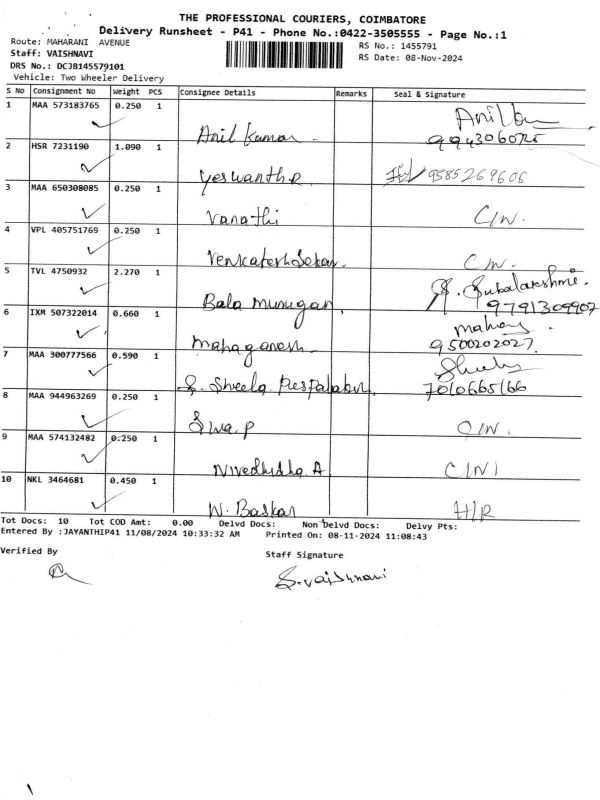 THE PROFESSIONAL COURIERS, COIMBATORE
Delivery Runsheet - P41 - Phone No.:0422-3505555 - Page No.:1
Route: MAHARANI AVENUE
RS No.: 1455791
Staff: VAISHNAVI
RS Date: 08-Nov-2024
DRS No.: DCJB145579101
Vehicle: Two Wheeler Delivery
S No Consignment No Weight PCS Consignee Details Remarks Seal & Signature
1 MAA 573183765 0.250 1
Anil Kumar
2 HSR 7231190 1.090 1
Yeswanth.R 9585269606
3 MAA 650308085 0.250 1
Vanathi C/W.
4 VPL 405751769 0.250 1
Venkatesh Sekar. C/W.
5 TVL 4750932 2.270 1
Bala Murugan S. Subalakshmi
9791309907
6 IXM 507322014 0.660 1
Mahaganesh 9500202027
7 MAA 300777566 0.590 1
S. Sheela 7010665166
8 MAA 944963269 0.250 1
Siva P C/W.
9 MAA 574132482 0.250 1
A
10 NKL 3464681 0.450 1
W. Baskar H/R
Tot Docs: 10 Tot COD Amt: 0.00 Delvd Docs: Non Delvd Docs: Delvy Pts:
Entered By :JAYANTHIP41 11/08/2024 10:33:32 AM Printed On: 08-11-2024 11:08:43
Verified By
Staff Signature
S.Vaishnavi